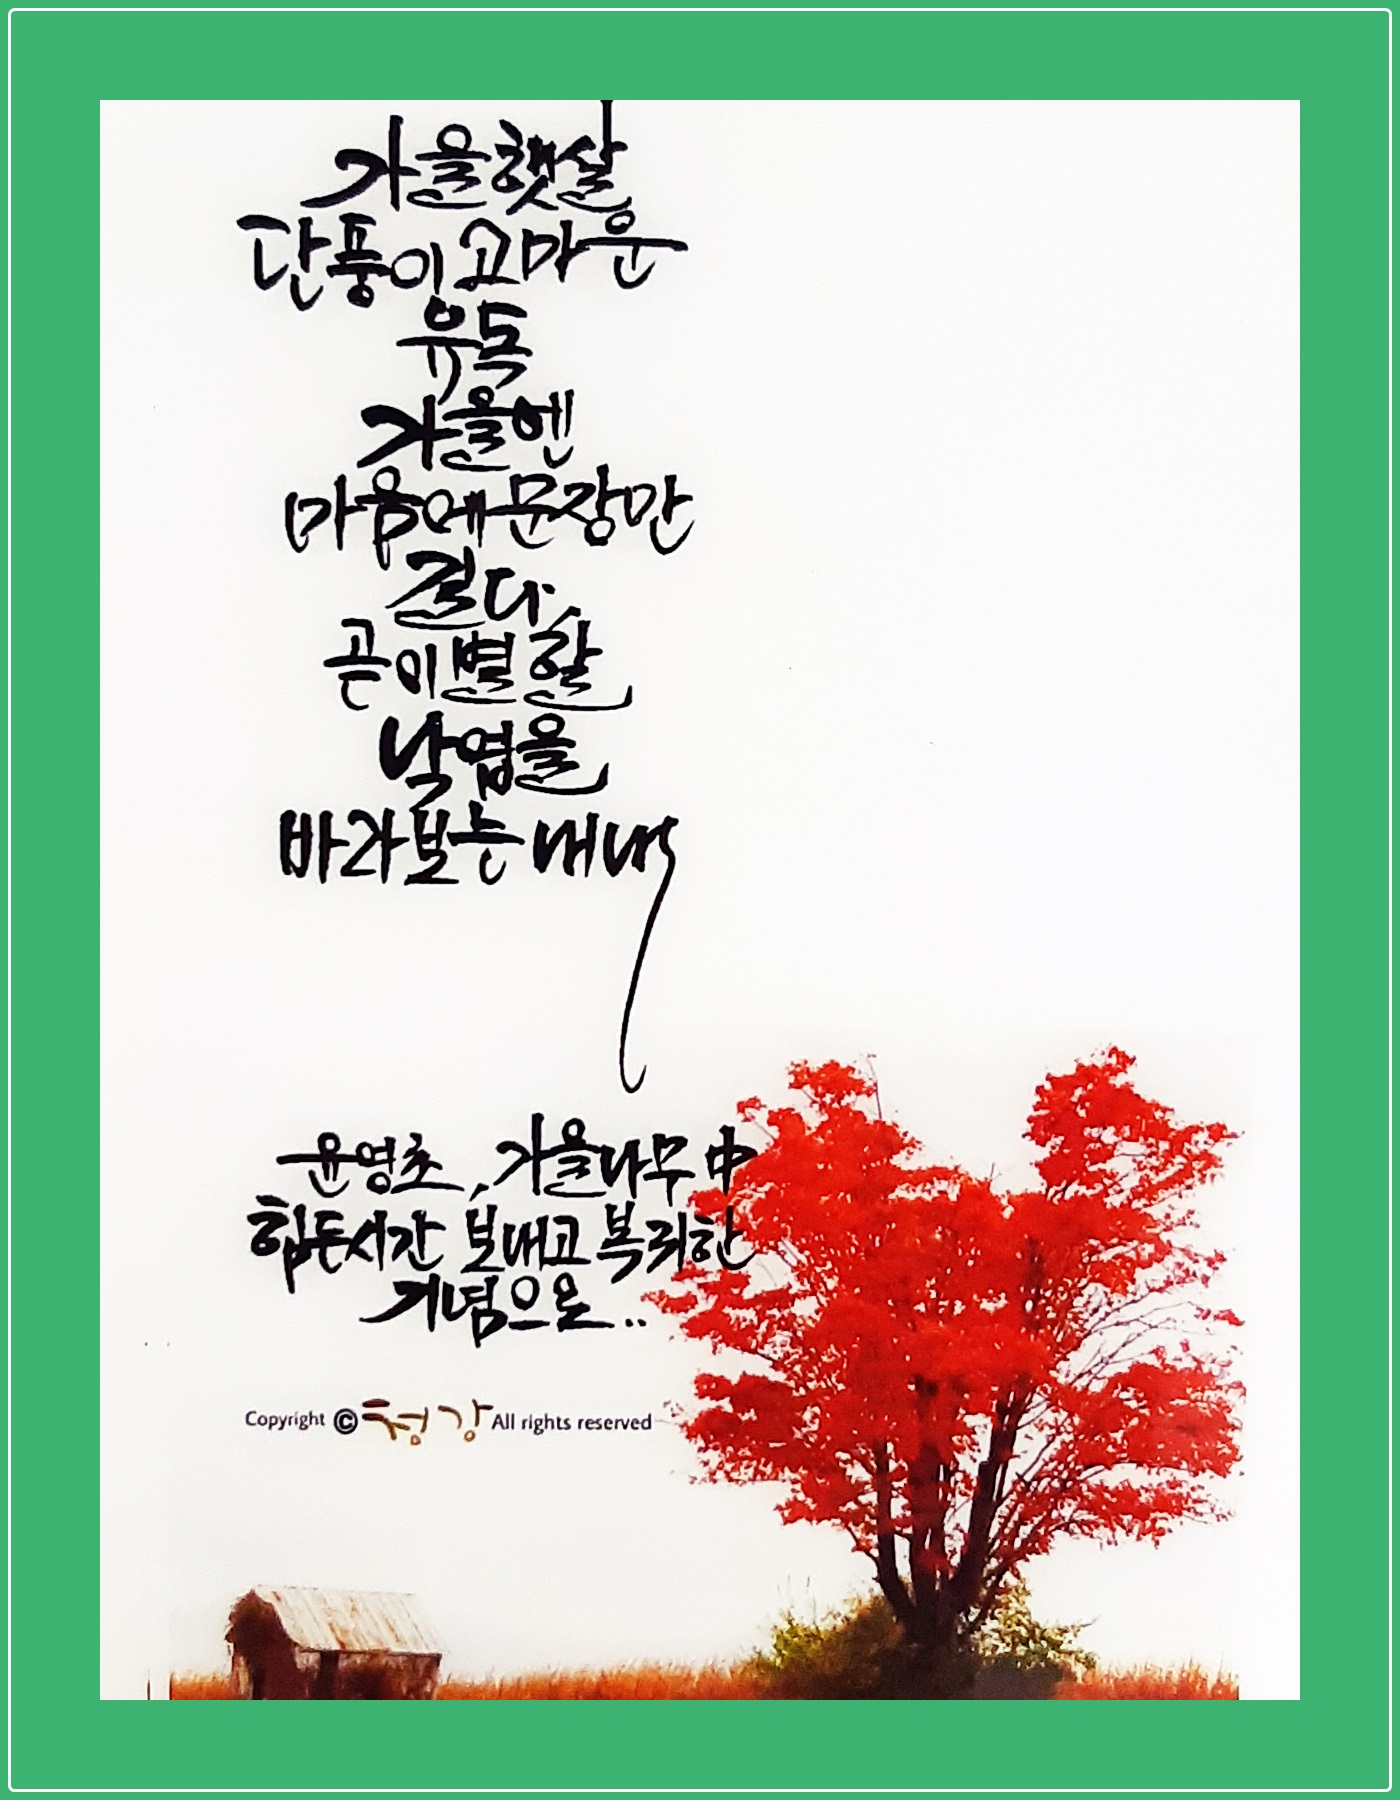 가을햇살
단풍이 고마운
유독
가을엔
마음에 문장만
걸다.
곧 이별할
낙엽을
바라보는 내내
윤영초, 가을나무 中
힘든시간 보내고 복귀한
기념으로..
Copyright © 청강 All rights reserved